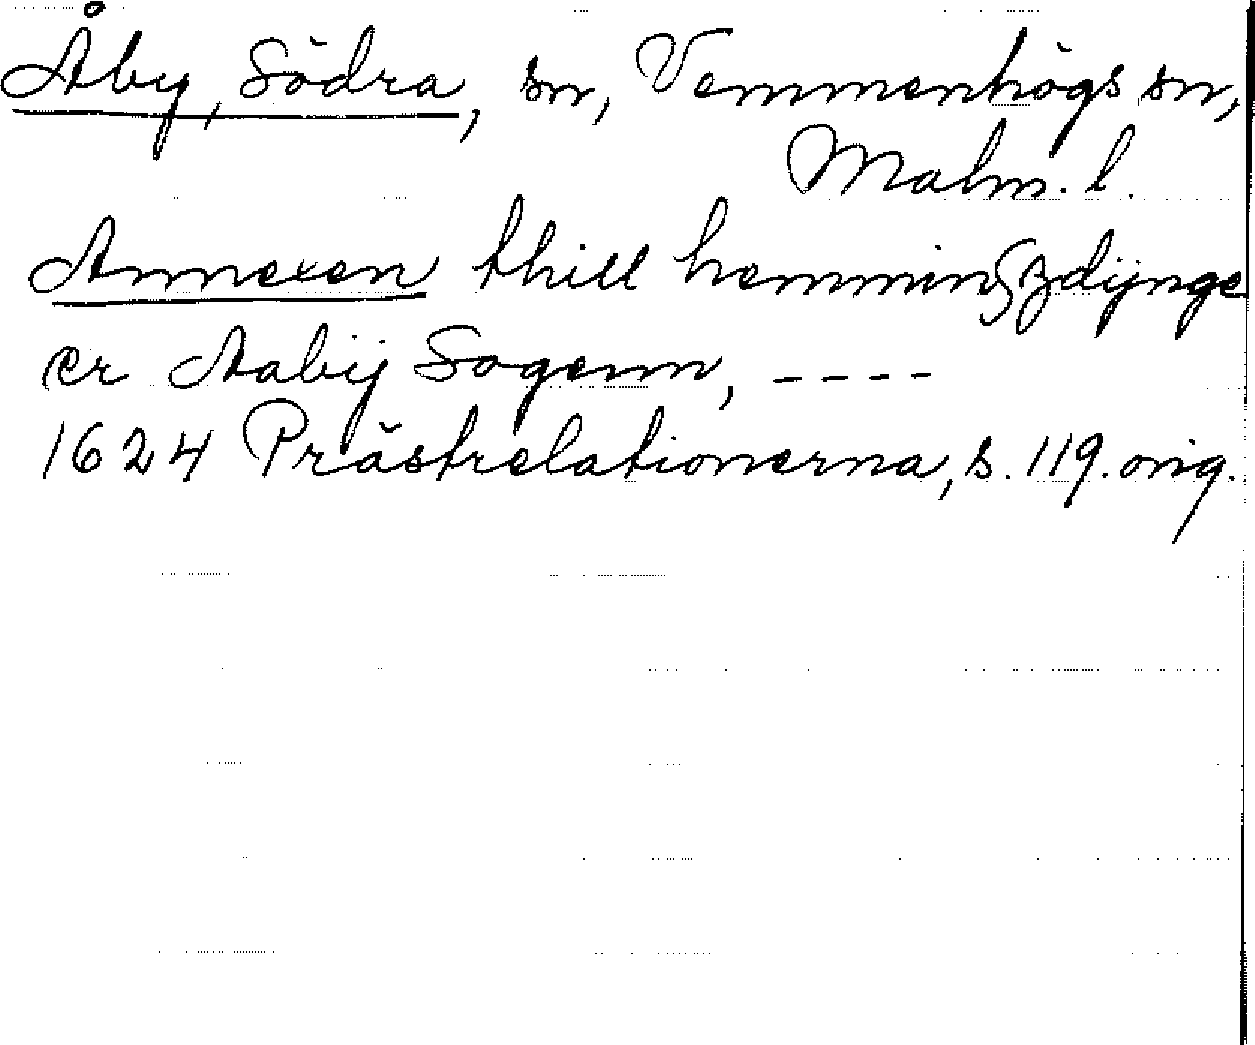 Åby, Södra, sn, Vemmenhögs sn,
Malm. l.
Annexen thill hemmingzdijnge
er Aabij Sogenn, - - - -
1624 Prästrelationerna, s. 119. orig.